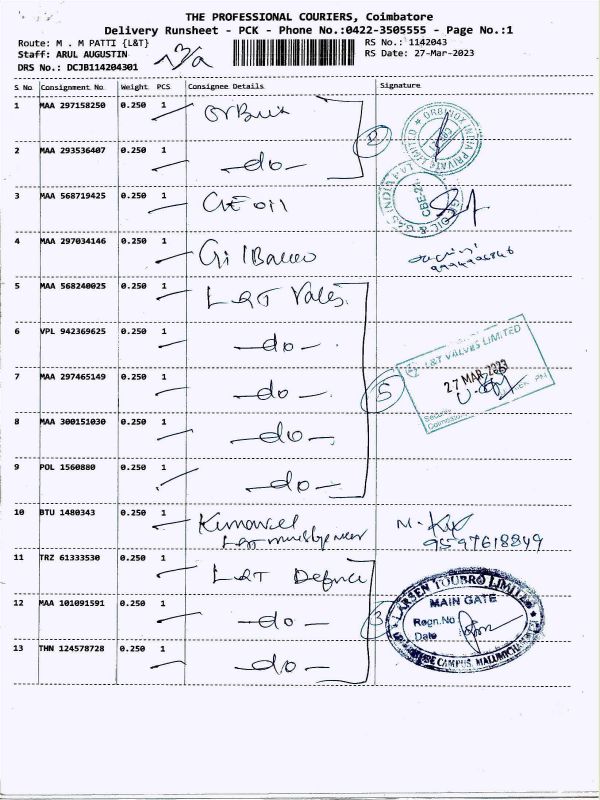 THE PROFESSIONAL COURIERS, Coimbatore
Delivery Runsheet - PCK - Phone No.:0422-3505555 - Page No.:1
Route: M . M PATTI {L&T}
RS No.: 1142043
Staff: ARUL AUGUSTIN
RS Date: 27-Mar-2023
DRS No.: DCJB114204301
S No Consignment No. Weight PCS Consignee Details Signature
1 MAA 297158250 0.250 1
ORBINOX INDIA PRIVATE LIMITED
2 MAA 293536407 0.250 1 -do-
2
3 MAA 568719425 0.250 1 GE oil
OIL & GAS INDIA
4 MAA 297034146 0.250 1
5 MAA 568240025 0.250 1 L&T
6 VPL 942369625 0.250 1 -do-
L&T VALVES LIMITED
27 MAR 2023
7 MAA 297465149 0.250 1 -do-
5
8 MAA 300151030 0.250 1 -do-
9 POL 1560880 0.250 1 -do-
10 BTU 1480343 0.250 1
9597618849
11 TRZ 61333530 0.250 1 L&T Defence
LARSEN & TOUBRO LIMITED
MAIN GATE
Regn.No
Date
12 MAA 101091591 0.250 1 -do-
3
13 THN 124578728 0.250 1 -do-